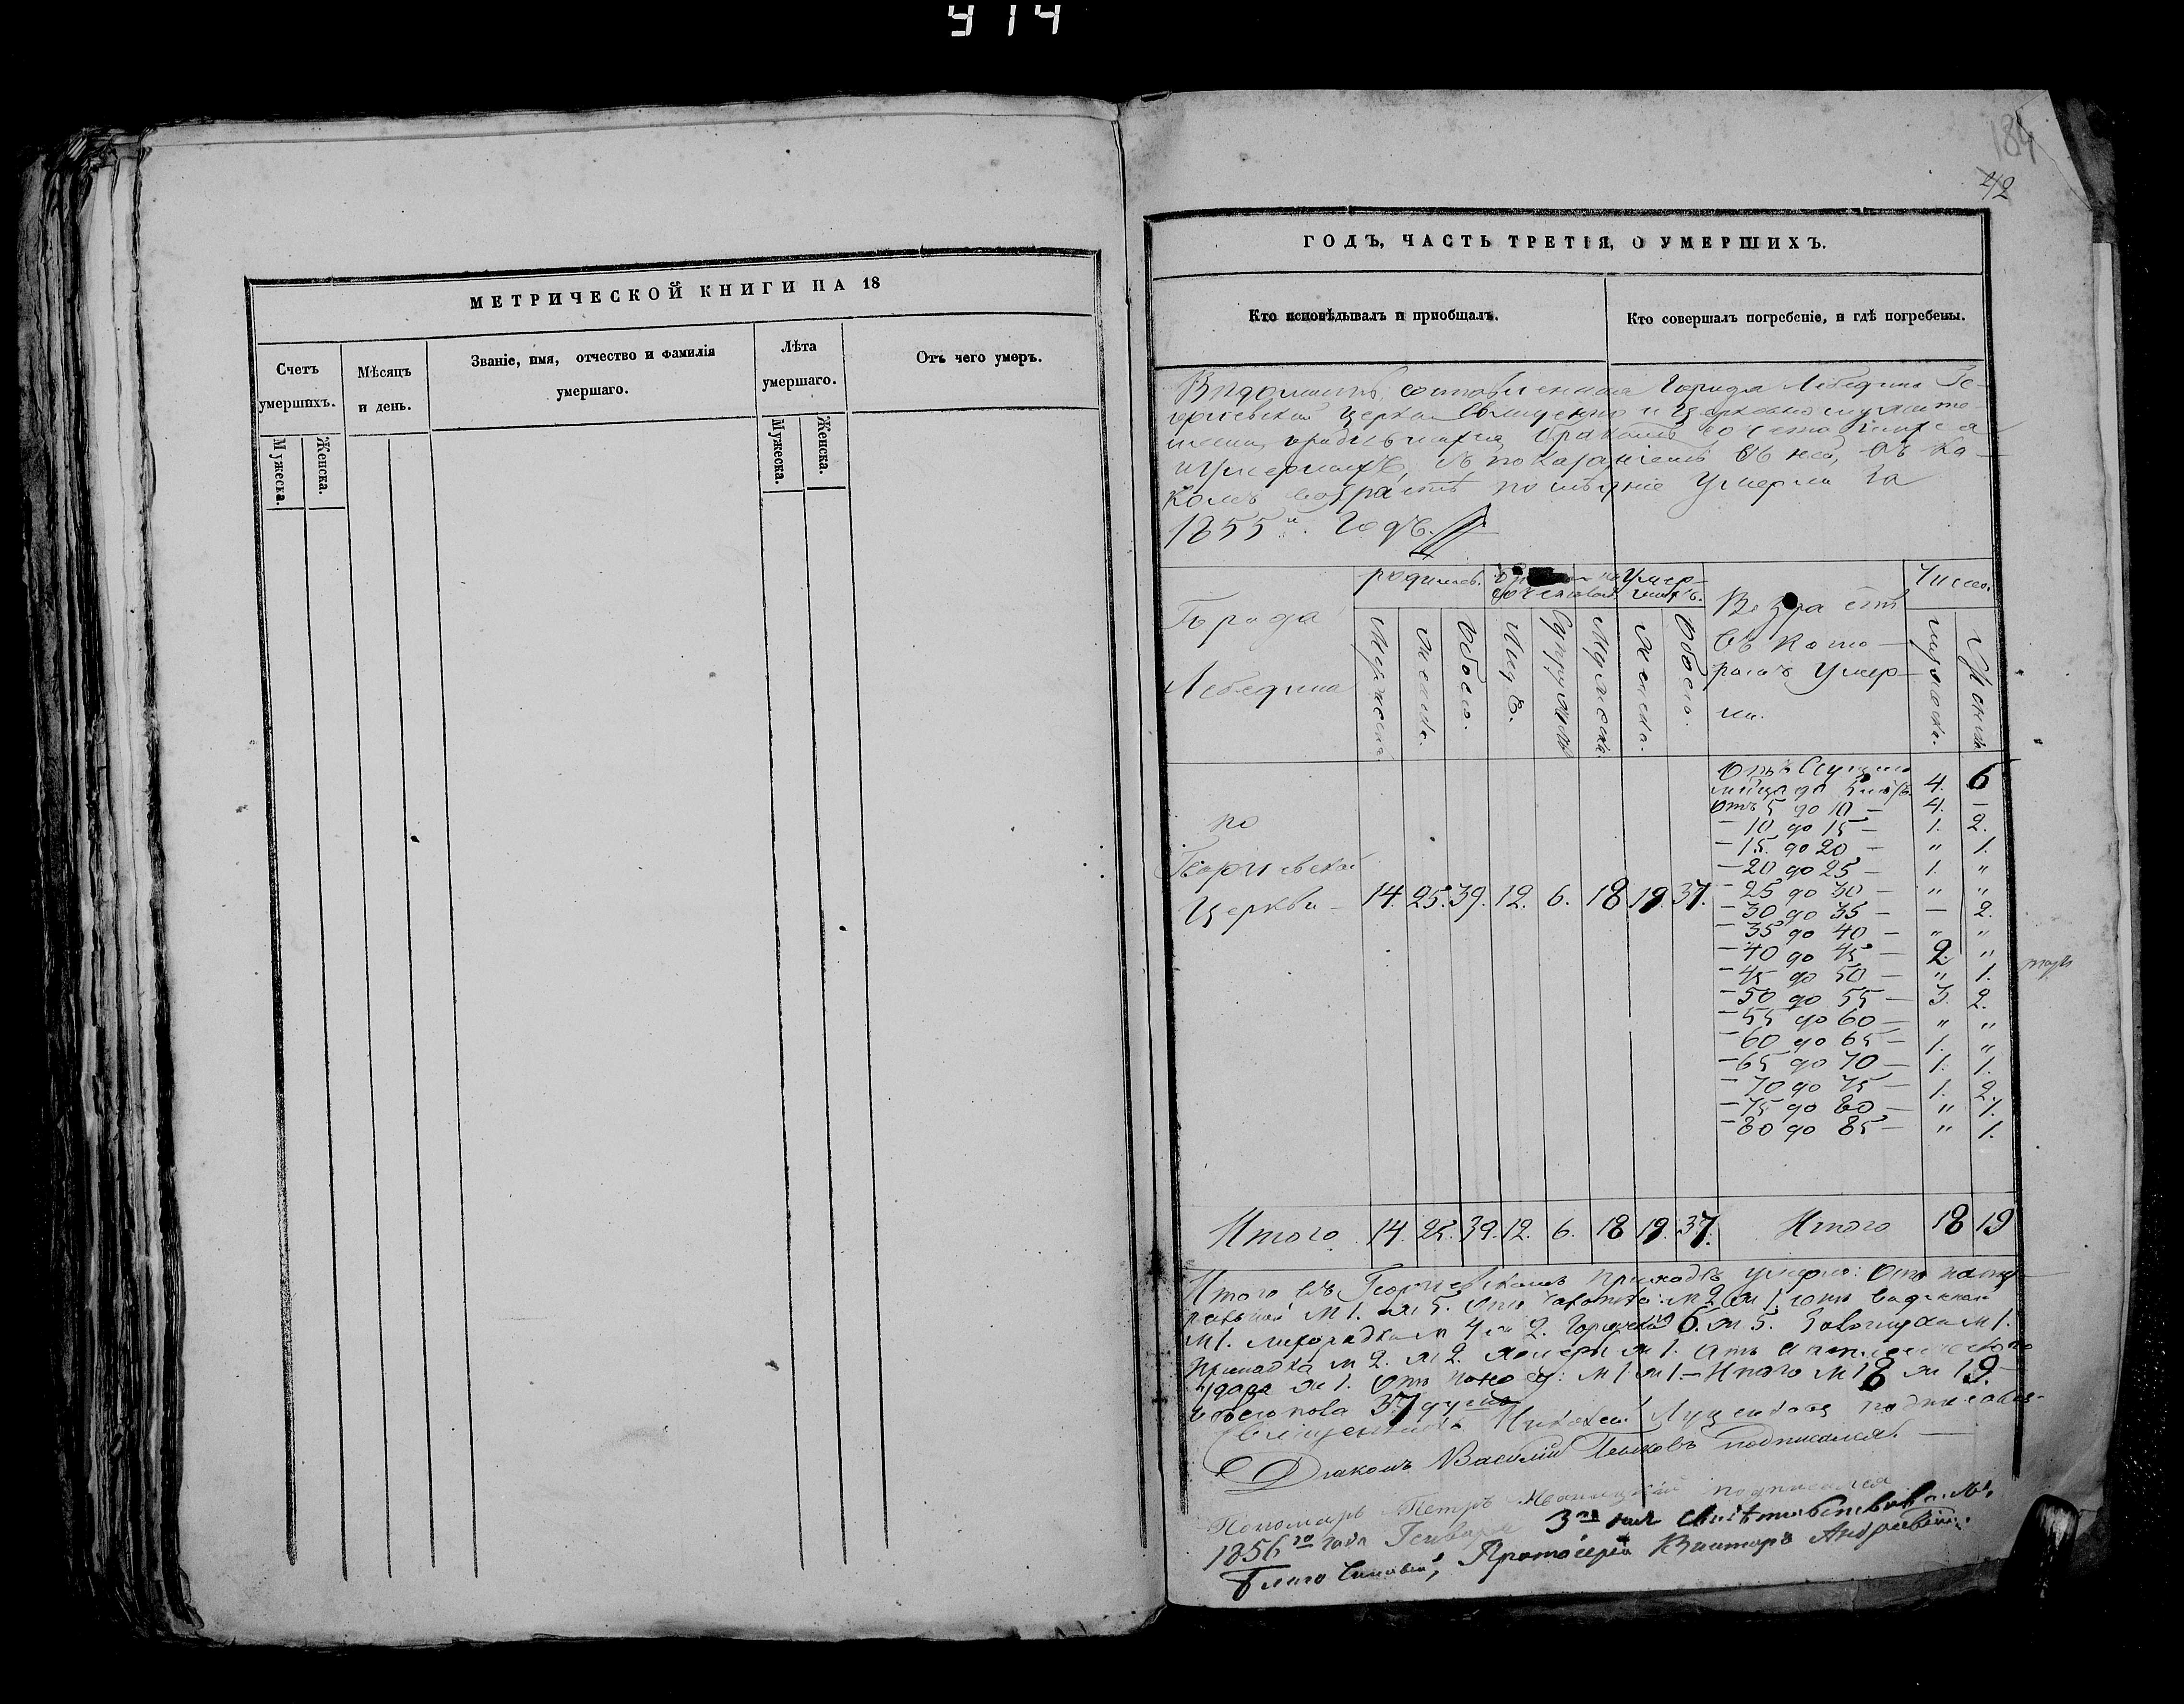 414
МЕТРИЧЕСКОЙ КНИГИ НА 18
Счетъ умершихъ.
Мужеска.
Женска.
Мѣсяцъ и день.
Званіе, имя, отчество и фамилія
умершаго.
Лѣта
умершаго.
Мужеска.
Женска.
Отъ чего умеръ.
184
42
ГОДЪ, ЧАСТЬ ТРЕТІЯ, О УМЕРШИХЪ.
Кто исповѣдывалъ и пріобщалъ.
Кто совершалъ погребеніе, и гдѣ погребены.
Вѣдомость, составленная города Лебедина Ге-
оргіевской церкви Священно и Церковнослужите-
лями, о родившихся, бракомъ сочетавшихся
и умершихъ, съ показаніемъ въ ней, въ ка-
комъ возрастѣ послѣдніе умерли за
1855й. годъ.
Города
Лебедина
родилось.
Мужеска
женска.
Обоего.
сочетавш.
Лицъ.
Супружествъ
Умер-
шихъ.
Мужеска
женска.
Обоего.
Возрастъ
въ кото-
ромъ умер-
ли.
Число.
мужеска.
Женска
по
Георгіевской
Церкви -
14. 25. 39. 12. 6. 18 19. 37.
до 5 лѣтъ 4. 6
отъ 5 до 10 — 4. —
— 10 до 15 — 1. 2.
— 15. до 20 — " 1.
— 20 до 25 — 1. "
— 25 до 30 — " "
— 30 до 35 — — 2.
— 35 до 40 — " "
— 40 до 45 — 2. "
— 45 до 50 — " 1.
— 50 до 55 — 3. 2.
— 55 до 60 — " "
— 60 до 65 — 1. "
— 65 до 70 — 1. 1.
— 70 до 75 — 1. 2.
— 75 до 80 — " 1.
— 80 до 85 — " 1.
Итого 14. 25. 39. 12. 6. 18 19. 37. Итого 18 19
Итого въ Георгіевскомъ приходѣ умерло: Отъ нату-
ральной м 1. ж 5. отъ чахотки: м 2 ж 1. отъ водяной
м 1. лихорадки м 4 ж 2. Горячки 6. ж 5. Золотухи м 1.
м 2. ж 2. холеры ж 1. отъ апоплексическаго
удара ж 1. Отъ поносу: м 1 ж 1 — Итого м 18 ж 19. —
обоего пола 37 душъ
Священникъ Николай Луценковъ подписался
Діаконъ Василій подписался. —
Пономарь Петръ Иваницкій подписался
1856го года Генваря 3го дня свидѣтельствовалъ.
Благочинный, Протоіерей Викторъ Андреевъ.